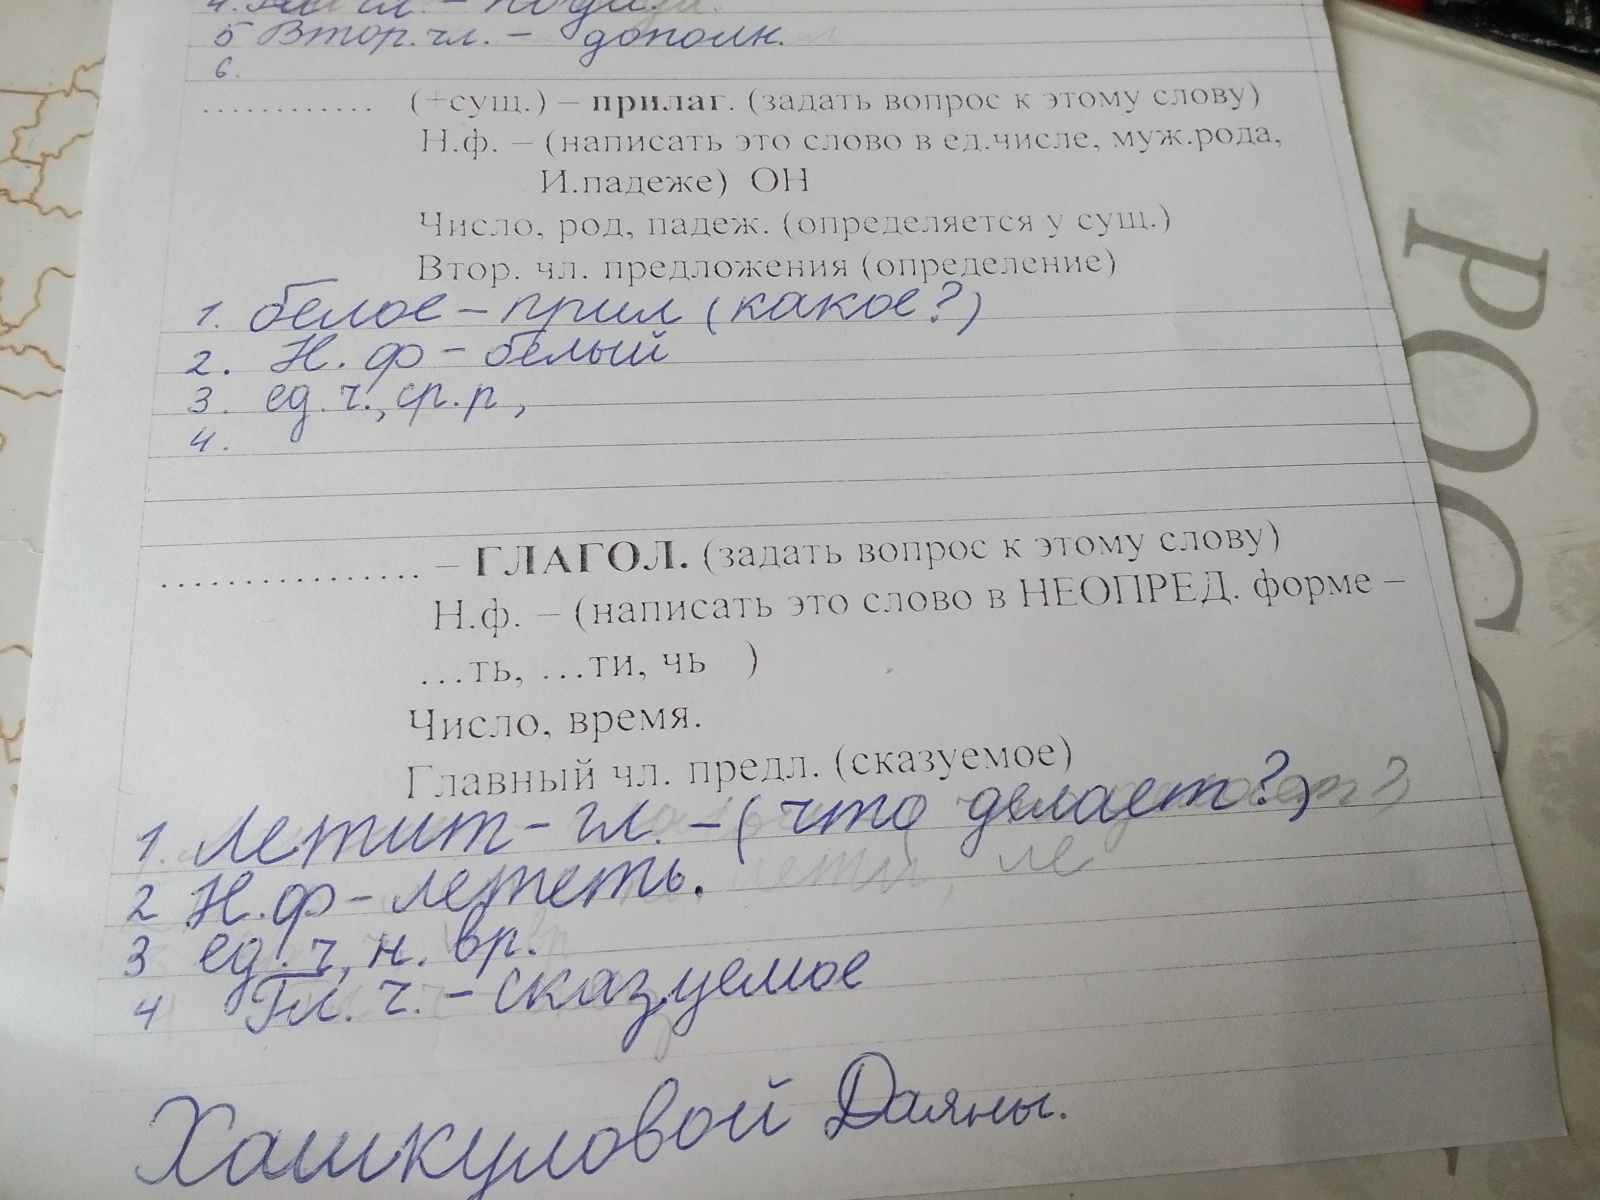 5 Втор. чл. – дополн.
6.
............ (+сущ.) – прилаг. (задать вопрос к этому слову)
Н.ф. – (написать это слово в ед.числе, муж.рода,
И.падеже) ОН
Число, род, падеж. (определяется у сущ.)
Втор. чл. предложения (определение)
1. белое – прил (какое?)
2. Н. ф – белый
3. ед. ч., ср. р,
4.
................ – ГЛАГОЛ. (задать вопрос к этому слову)
Н.ф. – (написать это слово в НЕОПРЕД. форме –
…ть, …ти, чь )
Число, время.
Главный чл. предл. (сказуемое)
1. Летит – гл. – (что делает?)
2 Н.ф – лететь.
3 ед. ч, н. вр.
4 Гл. ч. – сказуемое
Хашкуловой Даяны.
РОСС